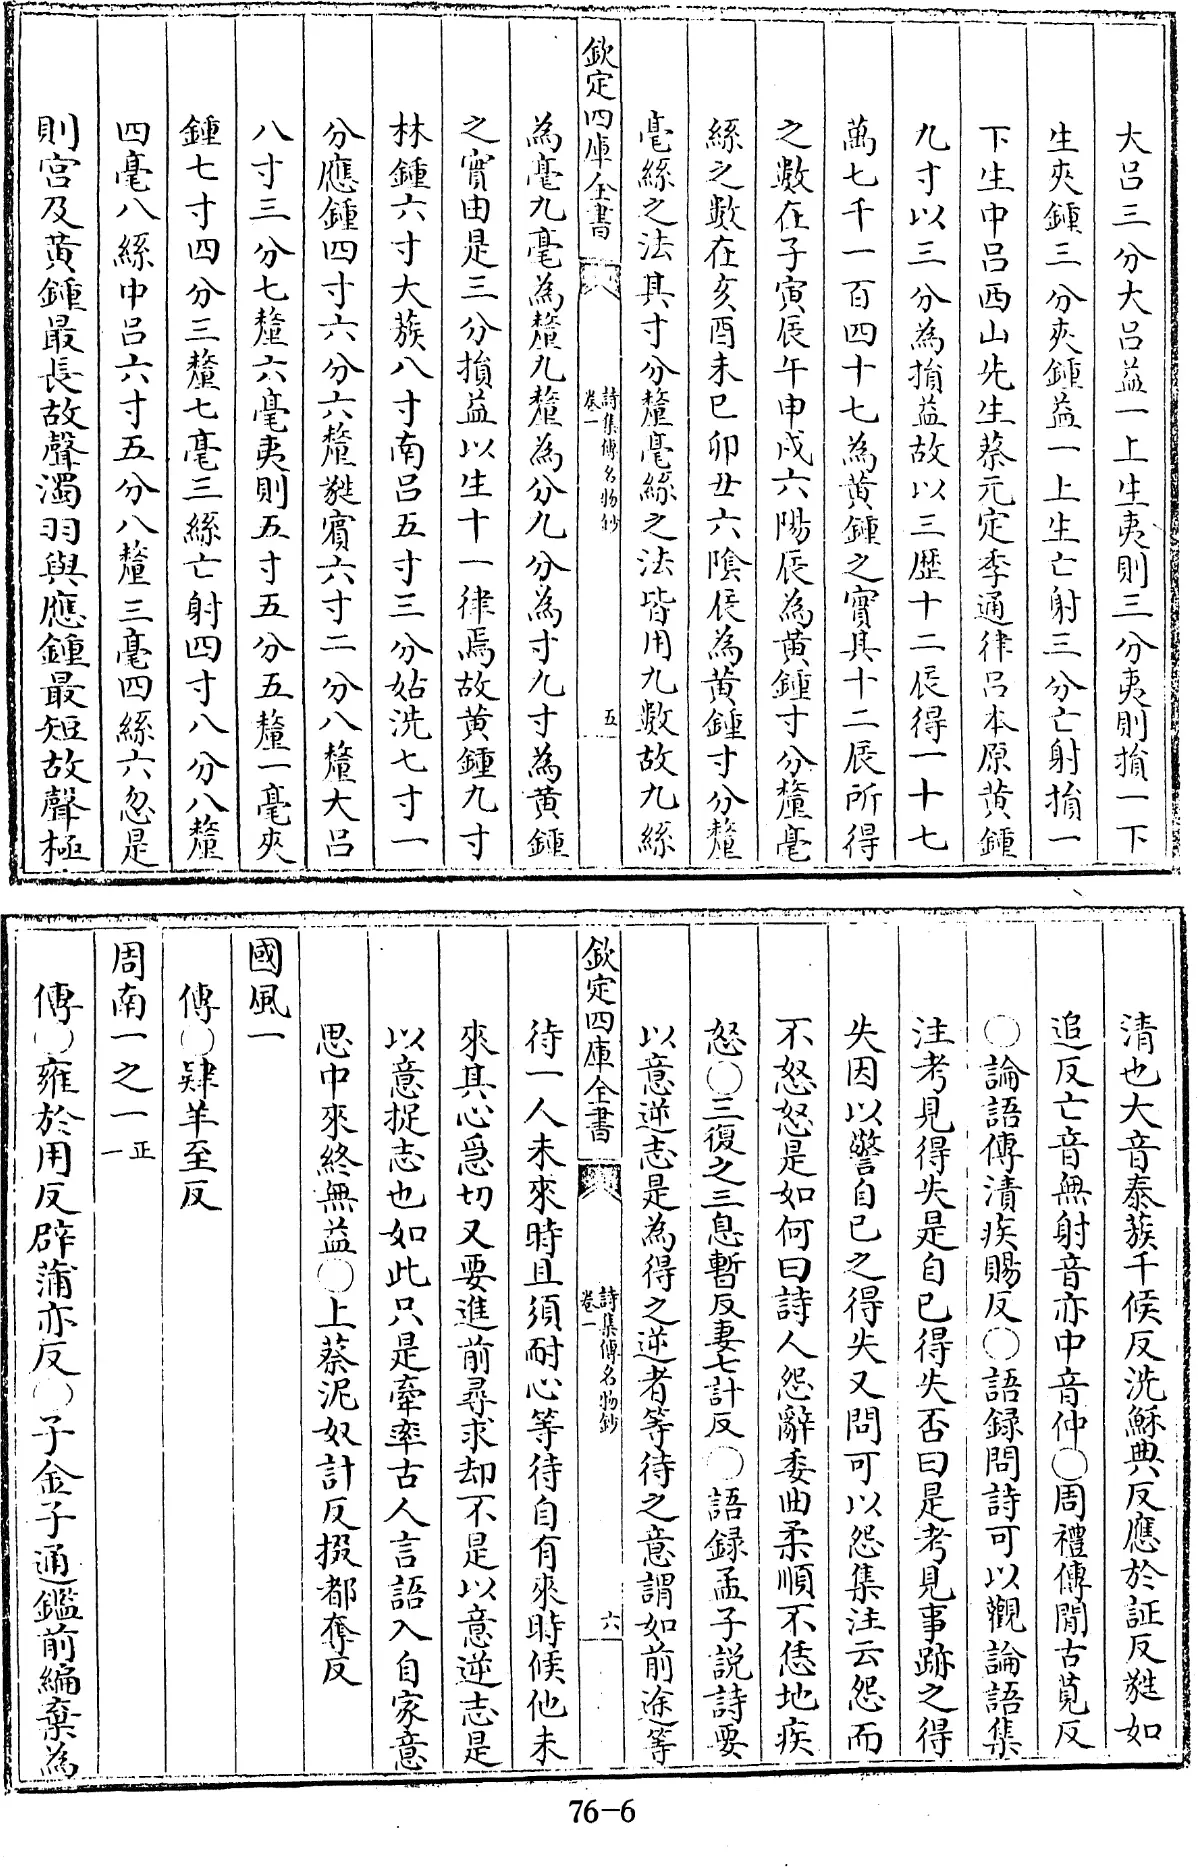 大呂三分大呂益一上生夷則三分夷則損一下
生夾鍾三分夾鍾益一上生亡射三分亡射損一
下生中呂西山先生蔡元定季通律呂本原黄鍾
九寸以三分為損益故以三歴十二辰得一十七
萬七千一百四十七為黄鍾之實具十二辰所得
之數在子寅辰午申戌六陽辰為黄鍾寸分釐毫
絲之數在亥酉未巳卯丑六陰辰為黄鍾寸分釐
毫絲之法其寸分釐毫絲之法皆用九數故九絲
欽定四庫全書
詩集傳名物鈔
卷一
五
為毫九毫為釐九釐為分九分為寸九寸為黄鍾
之實由是三分損益以生十一律焉故黄鍾九寸
林鍾六寸大蔟八寸南呂五寸三分姑洗七寸一
分應鍾四寸六分六釐蕤賓六寸二分八釐大呂
八寸三分七釐六毫夷則五寸五分五釐一毫夾
鍾七寸四分三釐七毫三絲亡射四寸八分八釐
四毫八絲中呂六寸五分八釐三毫四絲六忽是
則宫及黄鍾最長故聲濁羽與應鍾最短故聲極
清也大音泰蔟千候反洗穌典反應於証反蕤如
追反亡音無射音亦中音仲○周禮傳閒古莧反
○論語傳漬疾賜反○語録問詩可以觀論語集
注考見得失是自已得失否曰是考見事跡之得
失因以警自已之得失又問可以怨集注云怨而
不怒怒是如何曰詩人怨辭委曲柔順不恁地疾
怒○三復之三息暫反妻七計反○語録孟子説詩要
以意逆志是為得之逆者等待之意謂如前途等
欽定四庫全書
詩集傳名物鈔
卷一
六
待一人未來時且須耐心等待自有來時候他未
來其心急切又要進前尋求却不是以意逆志是
以意捉志也如此只是牽率古人言語入自家意
思中來終無益○上蔡泥奴計反掇都奪反
國風一
傳○肄羊至反
周南一之一 正一
傳○雍於用反辟蒲亦反○子金子通鑑前編棄為
76-6